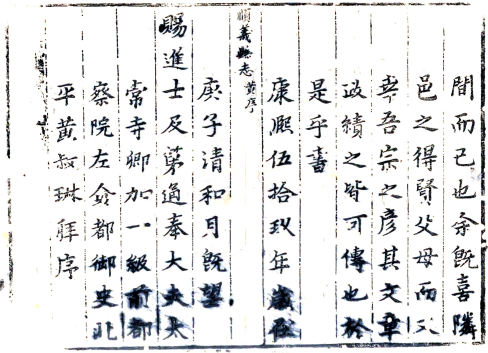 間而已也余既喜隣
邑之得賢父母而又
幸吾宗之彦其文章
政績之皆可傳也於
是乎書
康熙伍拾玖年歲在
順義縣志 黄序
庚子清和月既望
賜進士及第通奉大夫太
常寺卿加一級前都
察院左僉都御史北
平黄叔琳拜序